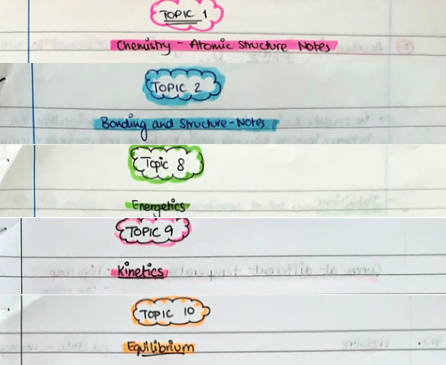 TOPIC 1
Chemistry - Atomic Structure Notes
TOPIC 2
Bonding and Structure - Notes
Topic 8
Energetics
TOPIC 9
Kinetics
TOPIC 10
Equilibrium